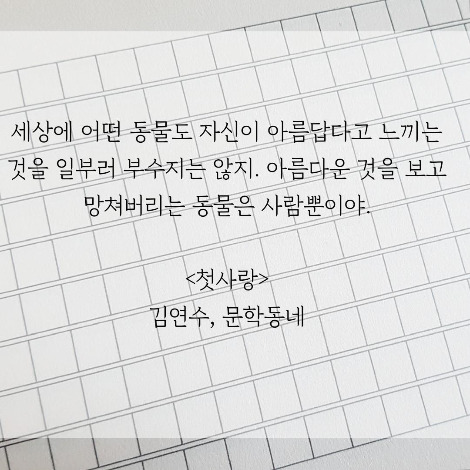 세상에 어떤 동물도 자신이 아름답다고 느끼는
것을 일부러 부수지는 않지. 아름다운 것을 보고
망쳐버리는 동물은 사람뿐이야.
<첫사랑>
김연수, 문학동네